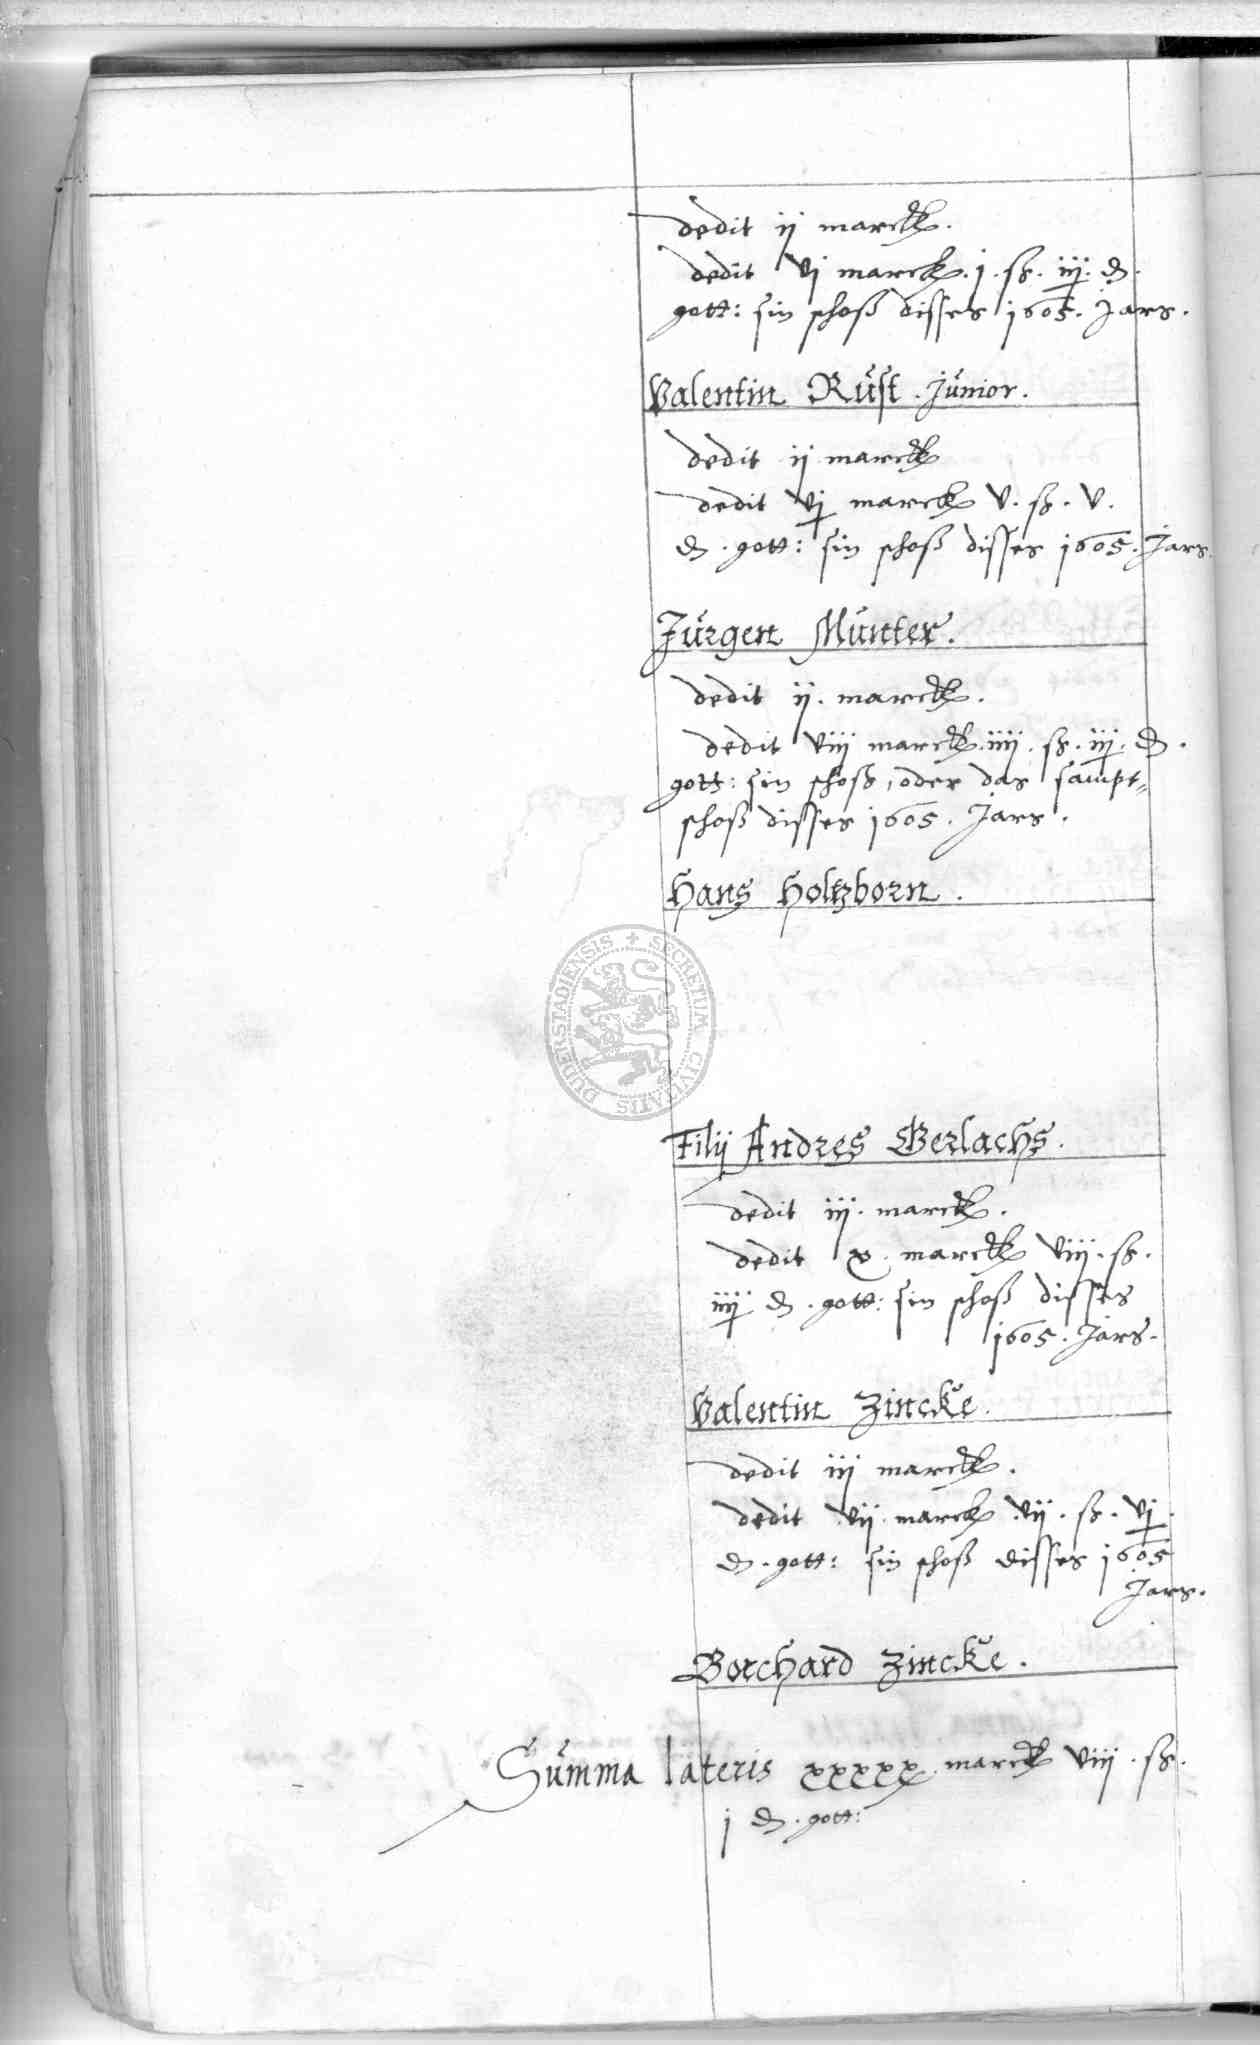 dedit ij marck.
dedit vj marck. j. ß. iij. d.
gott: sin schoß disses 1605. Jars.
Valentin Rust. Junior.
dedit ij marck
dedit vj marck v. ß. v.
d. gott: sin schoß disses 1605. Jars.
Jurgen Munter.
dedit ij. marck.
dedit viij marck. iiij. ß. iij. d.
gott: sin schoß, oder das sampt=
schoß disses 1605. Jars.
Hans Holtzborn.
SECRETUM CIVITATIS DUDERSTADIENSIS
Filij Andres Gerlachs.
dedit iij. marck.
dedit x. marck viij. ß.
iiij d. gott: sin schoß disses
1605. Jars.
Valentin Zincke.
dedit iij marck.
dedit vij marck vij. ß. vj.
d. gott: sin schoß disses 1605
Jars.
Borchard Zincke.
Summa lateris xxxxx marck viij. ß.
j d. gott: